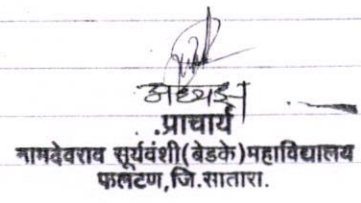 अध्यक्ष
.प्राचार्य
नामदेवराव सूर्यवंशी(बेडके)महाविद्यालय
फलटण,जि.सातारा.